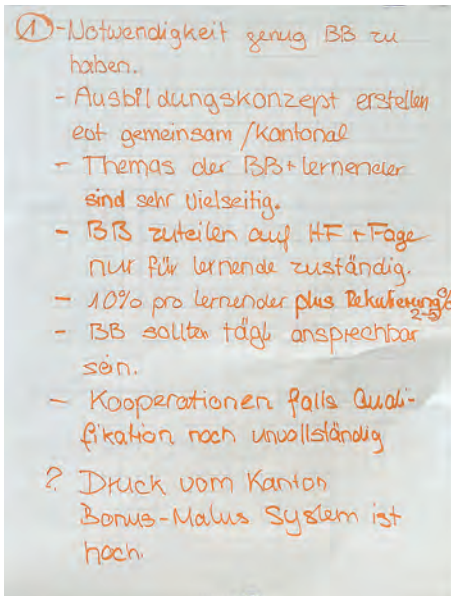 ① - Notwendigkeit genug BB zu
haben.
- Ausbildungskonzept erstellen
evt gemeinsam / Kantonal
- Themas der BB + lernender
sind sehr vielseitig.
- BB zuteilen auf HF + Fage
nur für lernende zuständig.
- 10% pro lernender plus Rekutierung %
2-5
- BB sollten tägl ansprechbar
sein.
- Kooperationen falls Quali-
fikation noch unvollständig
? Druck vom Kanton
Bonus-Malus System ist
hoch.